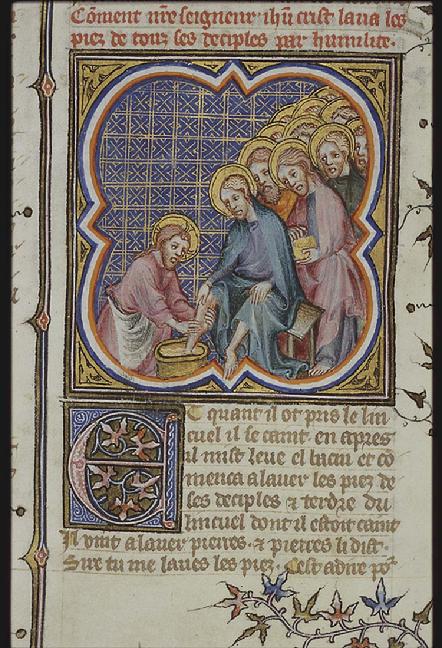 Cōment nr̄e seigneur ihū crist laua les
piez de touz ses deciples par humilite.
Et quant il ot pris le lin
cuel il se caint en apres
il mist leue el bacin et cō
menca a lauer les piez de
ses deciples ⁊ terdre du
lincuel dont il estoit caint
Il vint a lauer pierres. ⁊ pierres li dist.
Sire tu me laues les piez. Cest a dire